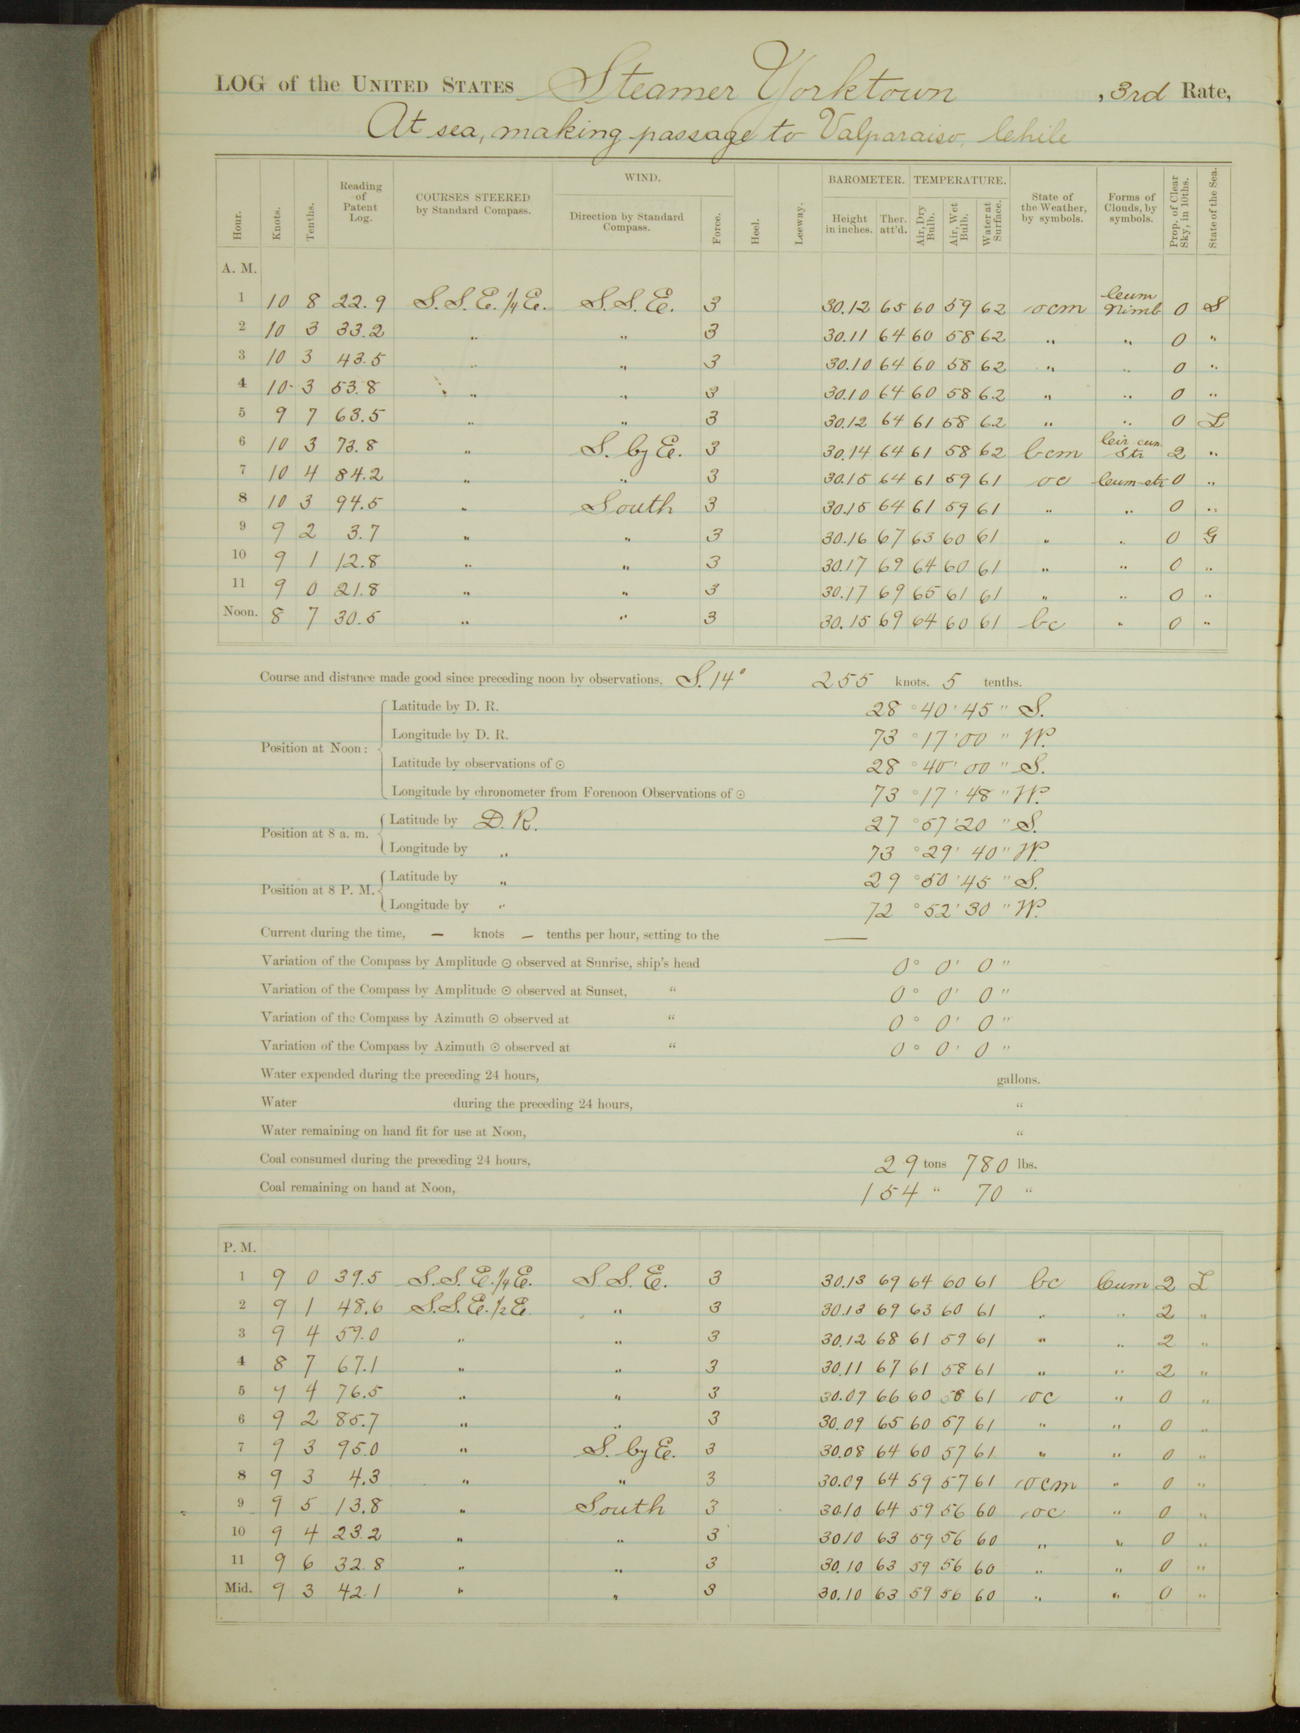 LOG of the UNITED STATES Steamer Yorktown , 3rd Rate,
At sea, making passage to Valparaiso, Chile
Hour. Knots. Tenths. Reading of Patent Log. COURSES STEERED by Standard Compass. WIND. Direction by Standard Compass. Force. Heel. Leeway. BAROMETER. Height in inches. Ther. att'd. TEMPERATURE. Air, Dry Bulb. Air, Wet Bulb. Water at Surface. State of the Weather, by symbols. Forms of Clouds, by symbols. Prop. of Clear Sky, in 10ths. State of the Sea.
A. M.
1 10 8 22.9 S.S.E. 1/4 E. S.S.E. 3 30.12 65 60 59 62 ocm Cum Nimb 0 S
2 10 3 33.2 " " 3 30.11 64 60 58 62 " " 0 "
3 10 3 43.5 " " 3 30.10 64 60 58 62 " " 0 "
4 10 3 53.8 " " 3 30.10 64 60 58 62 " " 0 "
5 9 7 63.5 " " 3 30.12 64 61 58 62 " " 0 L
6 10 3 73.8 " S. by E. 3 30.14 64 61 58 62 bcm Cir cum Str 2 "
7 10 4 84.2 " " 3 30.15 64 61 59 61 oc Cum-str 0 "
8 10 3 94.5 " South 3 30.15 64 61 59 61 " " 0 "
9 9 2 3.7 " " 3 30.16 67 63 60 61 " " 0 G
10 9 1 12.8 " " 3 30.17 69 64 60 61 " " 0 "
11 9 0 21.8 " " 3 30.17 69 65 61 61 " " 0 "
Noon. 8 7 30.5 " " 3 30.15 69 64 60 61 bc " 0 "
Course and distance made good since preceding noon by observations, S. 14° 255 knots. 5 tenths.
Position at Noon: Latitude by D. R. 28° 40' 45" S.
Longitude by D. R. 73° 17' 00" W.
Latitude by observations of ☉ 28° 40' 00" S.
Longitude by chronometer from Forenoon Observations of ☉ 73° 17' 48" W.
Position at 8 a. m. Latitude by D. R. 27° 57' 20" S.
Longitude by " 73° 29' 40" W.
Position at 8 P. M. Latitude by " 29° 50' 45" S.
Longitude by " 72° 52' 30" W.
Current during the time, — knots — tenths per hour, setting to the —
Variation of the Compass by Amplitude ☉ observed at Sunrise, ship's head 0° 0' 0"
Variation of the Compass by Amplitude ☉ observed at Sunset, " 0° 0' 0"
Variation of the Compass by Azimuth ☉ observed at " 0° 0' 0"
Variation of the Compass by Azimuth ☉ observed at " 0° 0' 0"
Water expended during the preceding 24 hours, gallons.
Water during the preceding 24 hours, "
Water remaining on hand fit for use at Noon, "
Coal consumed during the preceding 24 hours, 29 tons 780 lbs.
Coal remaining on hand at Noon, 154 " 70 "
P. M.
1 9 0 39.5 S.S.E. 1/4 E. S.S.E. 3 30.13 69 64 60 61 bc Cum 2 L
2 9 1 48.6 S.S.E. 1/2 E " 3 30.13 69 63 60 61 " " 2 "
3 9 4 59.0 " " 3 30.12 68 61 59 61 " " 2 "
4 8 7 67.1 " " 3 30.11 67 61 58 61 " " 2 "
5 9 4 76.5 " " 3 30.09 66 60 58 61 oc " 0 "
6 9 2 85.7 " " 3 30.09 65 60 57 61 " " 0 "
7 9 3 95.0 " S. by E. 3 30.08 64 60 57 61 " " 0 "
8 9 3 4.3 " " 3 30.09 64 59 57 61 ocm " 0 "
9 9 5 13.8 " South 3 30.10 64 59 56 60 oc " 0 "
10 9 4 23.2 " " 3 30.10 63 59 56 60 " " 0 "
11 9 6 32.8 " " 3 30.10 63 59 56 60 " " 0 "
Mid. 9 3 42.1 " " 3 30.10 63 59 56 60 " " 0 "